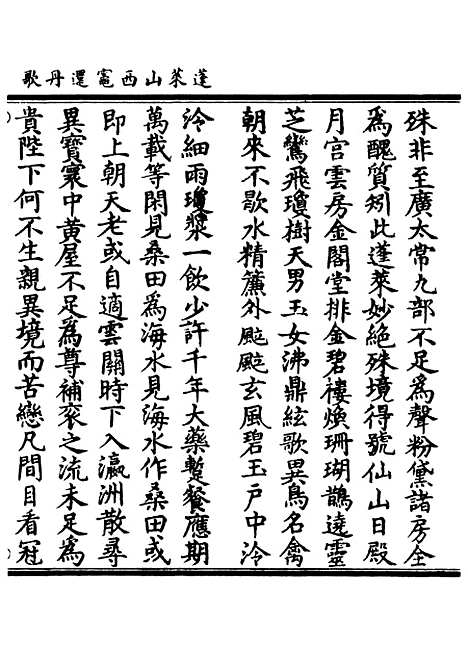 蓬萊山西竈還丹歌
殊非至廣太常九部不足為聲粉黛諸房全
為醜質矧此蓬萊妙絶殊境得號仙山日殿
月宮雲房金閣堂排金碧樓煥珊瑚鵲遶靈
芝鸞飛瓊樹天男玉女沸鼎絃歌異鳥名禽
朝來不歇水精簾外颭颭玄風碧玉戸中泠
泠細雨瓊漿一飲少許千年大藥蹔餐應期
萬載等閑見桑田為海水見海水作桑田或
即上朝天老或自適雲關時下入瀛洲散尋
異寶寰中黄屋不足為尊補衮之流未足為
貴陛下何不生親異境而苦戀凡間目看冠